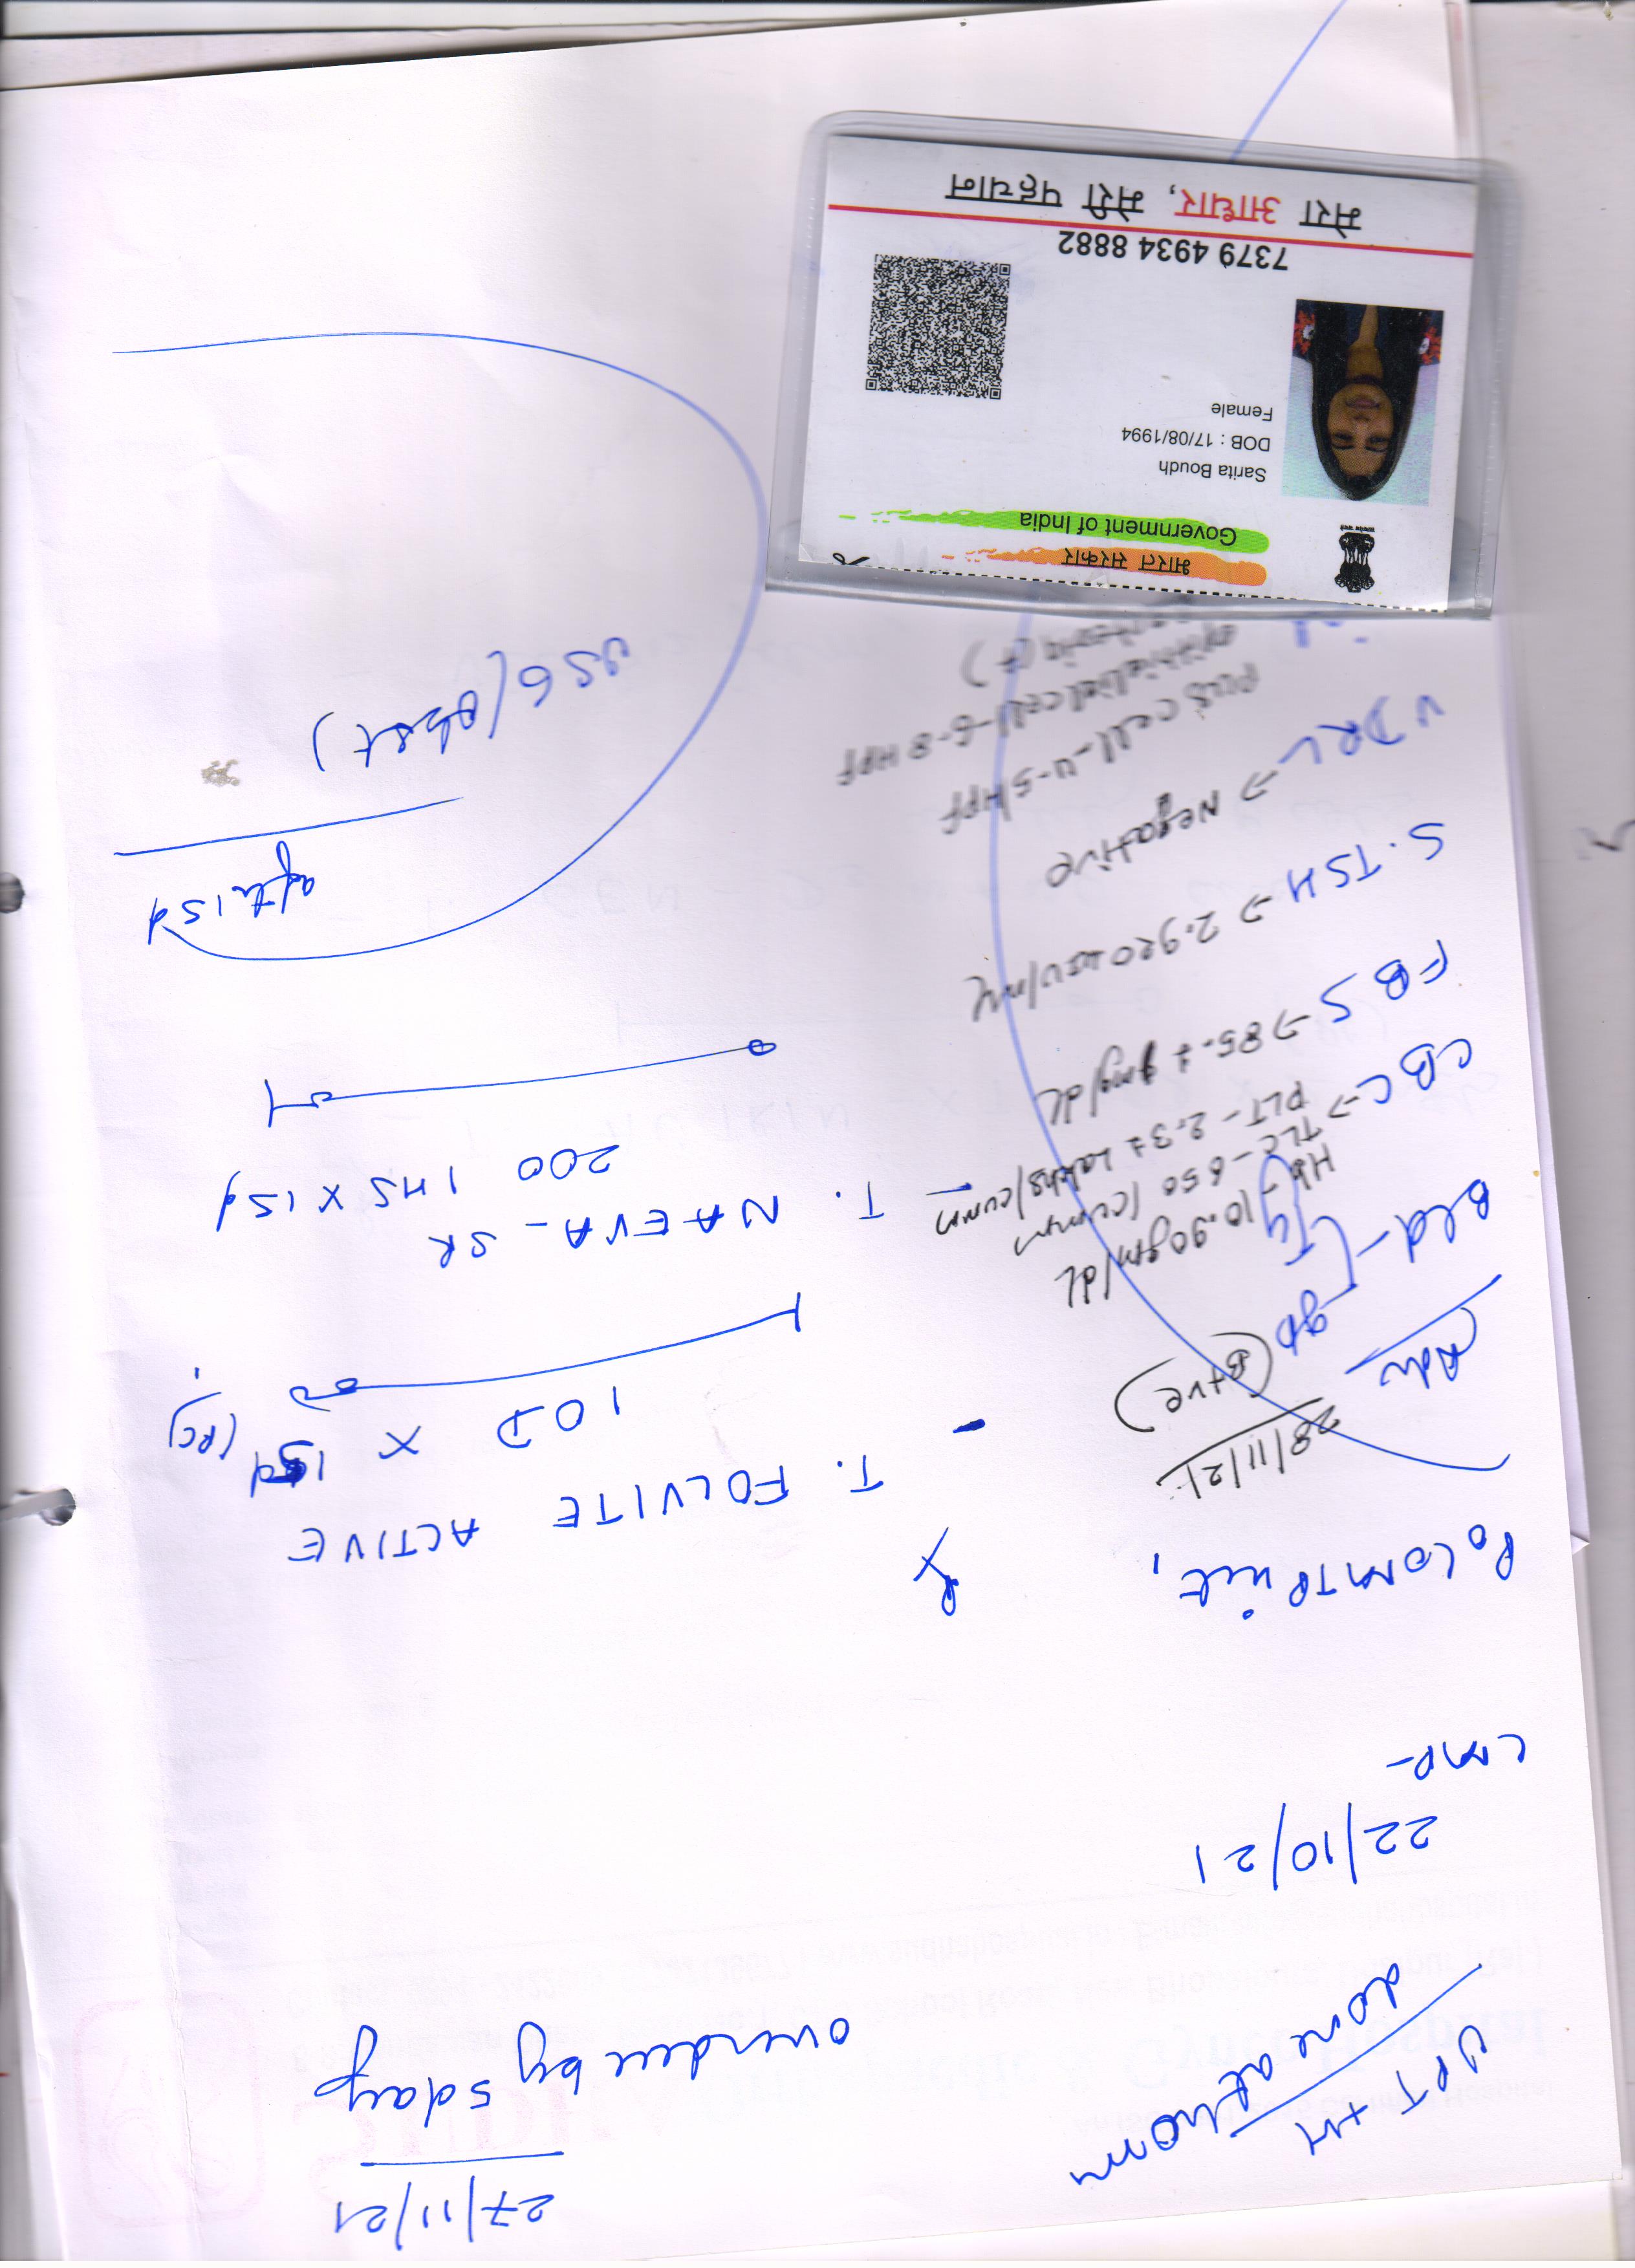 27/11/21
overdue by 5 day
UPT +ve
done at hom
LMP-
22/10/21
P0 COMTP kit,
Rx
T. FOLVITE ACTIVE
1 OD X 15d (PC)
- T. NAEVA - SR
200 1 HS X 15d
after 15d
USG (Obst)
28/11/21
Adv
Bld - gp (B+ve)
CBC →
Hb - 10.90gm/dL
TLC - 650 /cumm
PLT - 2.37 Lakhs/cumm
FBS → 85.7 gmg/dL
S. TSH → 2.920 uIU/mL
VDRL → Negative
Pus cell - 4-5 HPF
epithelial cell - 6-8 HPF
भारत सरकार
Government of India
Sarita Boudh
DOB : 17/08/1994
Female
7379 4934 8882
मेरा आधार, मेरी पहचान